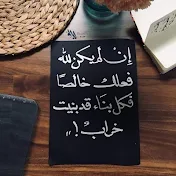 إن لم يكن لله
فعلك خالصًا
فكل بناء قد بنيت
خراب!،،